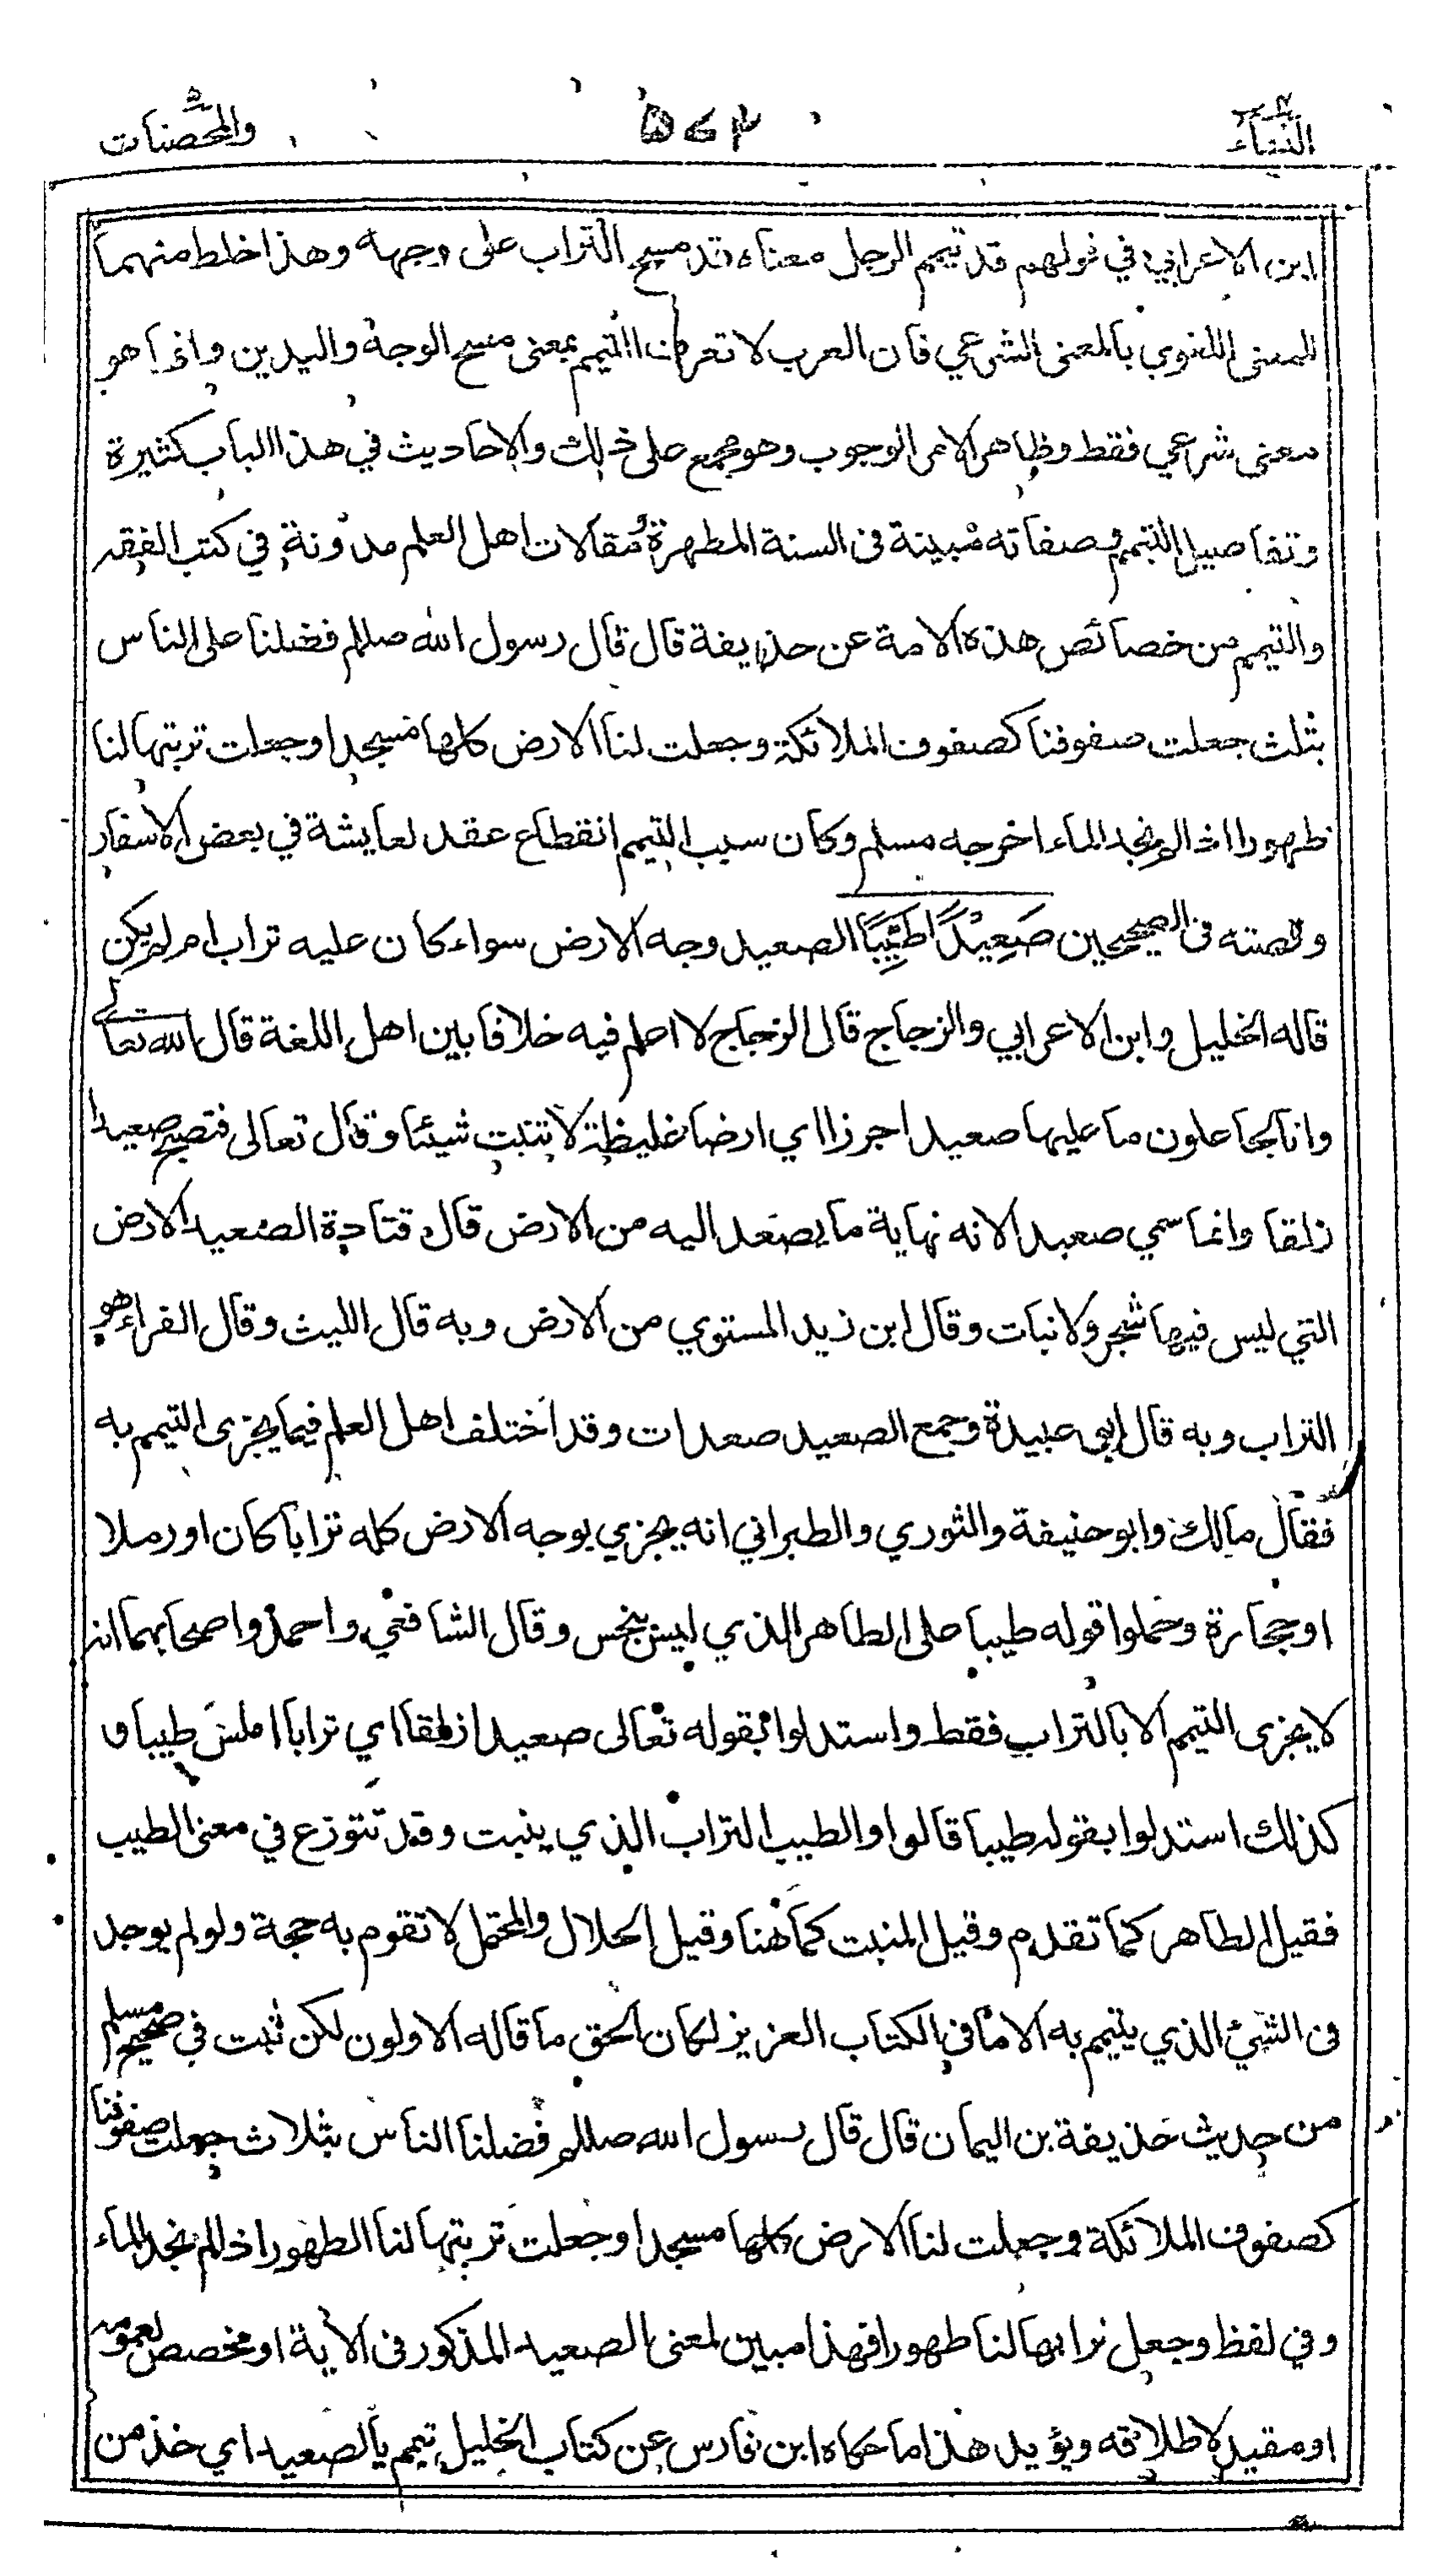 النساء ٤ ٥٧٢ والمحصنات ٥
ابن الاعرابي في قولهم قد تيمم الرجل معناه قد مسح التراب على وجهه وهذا خلط منهما
للمعنى اللغوي بالمعنى الشرعي فان العرب لا تعرف التيمم بمعنى مسح الوجه واليدين وانما هو
معنى شرعي فقط وظاهر الامر الوجوب وهو مجمع على ذلك والاحاديث في هذا الباب كثيرة
وتفاصيل التيمم وصفاته مبينة فى السنة المطهرة ومقالات اهل العلم مدونة في كتب الفقه
والتيمم من خصائص هذه الامة عن حذيفة قال قال رسول الله صللم فضلنا على الناس
بثلث جعلت صفوفنا كصفوف الملائكة وجعلت لنا الارض كلها مسجدا وجعلت تربتها لنا
طهورا اذا لم نجد الماء اخرجه مسلم وكان سبب التيمم انقطاع عقد لعايشة في بعض الاسفار
وقصته فى الصحيحين صَعِيْدًا طَيِّبًا الصعيد وجه الارض سواء كان عليه تراب ام لم يكن
قاله الخليل وابن الاعرابي والزجاج قال الزجاج لا اعلم فيه خلافا بين اهل اللغة قال الله تعالى
وانا لجاعلون ما عليها صعيدا جرزا اي ارضا غليظة لا تنبت شيئا وقال تعالى فتصبح صعيدا
زلقا وانما سمي صعيدا لانه نهاية ما يصعد اليه من الارض قال قتادة الصعيد الارض
التي ليس فيها شجر ولا نبات وقال ابن زيد المستوي من الارض وبه قال الليث وقال الفراء هو
التراب وبه قال ابو عبيدة وجمع الصعيد صعدات وقد اختلف اهل العلم فيما يجزى التيمم به
فقال مالك وابو حنيفة والثوري والطبراني انه يجزي بوجه الارض كله ترابا كان او رملا
او حجارة وحملوا قوله طيبا على الطاهر الذي ليس بنجس وقال الشافعي واحمد واصحابهما انه
لا يجزى التيمم الا بالتراب فقط واستدلوا بقوله تعالى صعيدا زلقا اي ترابا املس طيبا و
كذلك استدلوا بقوله طيبا قالوا والطيب التراب الذي ينبت وقد تنوزع في معنى الطيب
فقيل الطاهر كما تقدم وقيل المنبت كما هنا وقيل الحلال والمحتمل لا تقوم به حجة ولو لم يوجد
فى الشيئ الذي يتيمم به الا ما في الكتاب العزيز لكان الحق ما قاله الاولون لكن ثبت في صحيح مسلم
من حديث حذيفة بن اليمان قال قال رسول الله صللم فضلنا الناس بثلاث جعلت صفوفنا
كصفوف الملائكة وجعلت لنا الارض كلها مسجدا وجعلت تربتها لنا الطهور اذا لم نجد الماء
وفي لفظ وجعل ترابها لنا طهورا فهذا مبين لمعنى الصعيد المذكور فى الاية او مخصص لعمومه
او مقيد لاطلاقه ويؤيد هذا ما حكاه ابن فارس عن كتاب الخليل تيمم بالصعيد اي خذ من